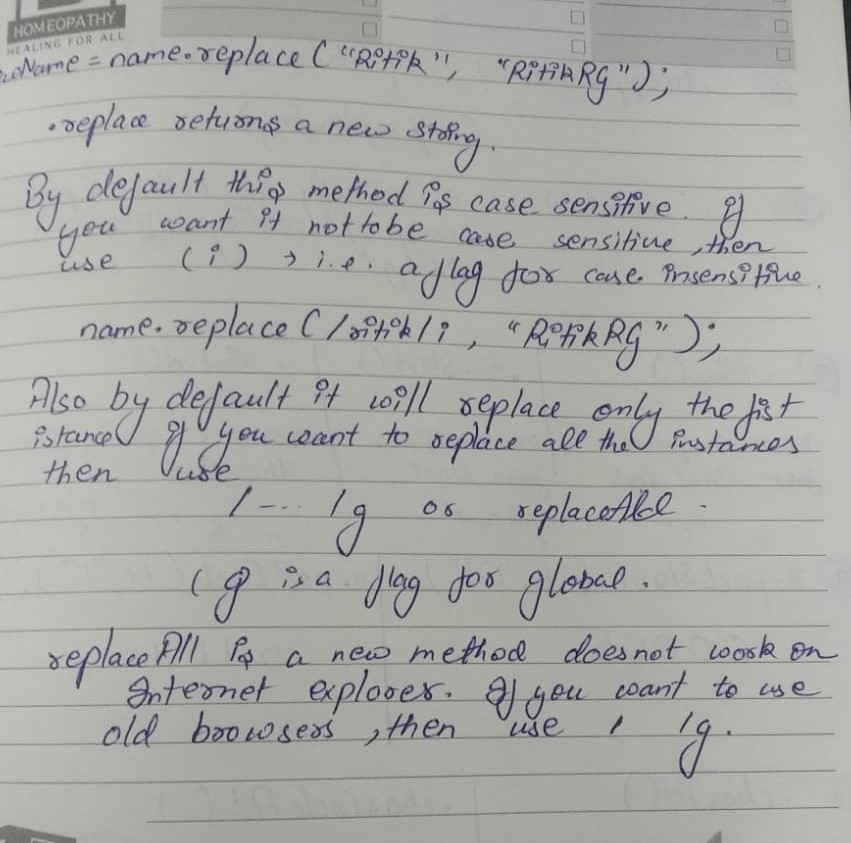 HOMEOPATHY
HEALING FOR ALL
Name = name.replace ("Ritik", "RitikRG");
.replace returns a new string.
By default this method is case sensitive. If
you want it not to be case sensitive, then
use (i) → i.e. a flag for case insensitive.
name.replace (/ritik/i, "RitikRG");
Also by default it will replace only the fist
istance if you want to replace all the instances
then use
/--- /g or replaceAll.
(g is a flag for global.
replaceAll is a new method does not work on
Internet explorer. If you want to use
old browsers, then use / /g.